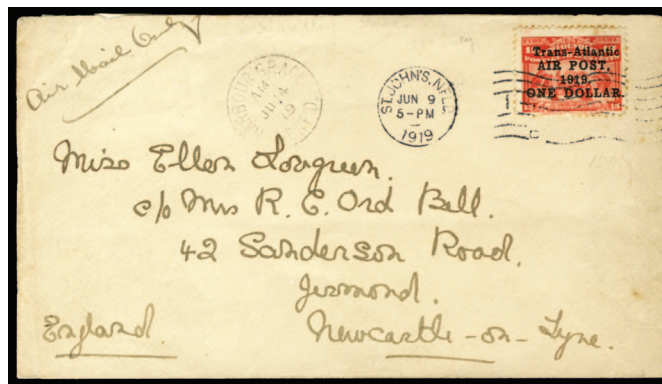 Air Mail Only
HARBOUR GRACE
AM
JU 4
19
NF'D.
ST. JOHN'S, NFLD.
JUN 9
5-PM
1919
Trans-Atlantic
AIR POST,
1919,
ONE DOLLAR.
Miss Ellen Lovgreen.
c/o Mrs R. E. Ord Bell.
42 Sanderson Road.
Jesmond.
England. Newcastle-on-Tyne.